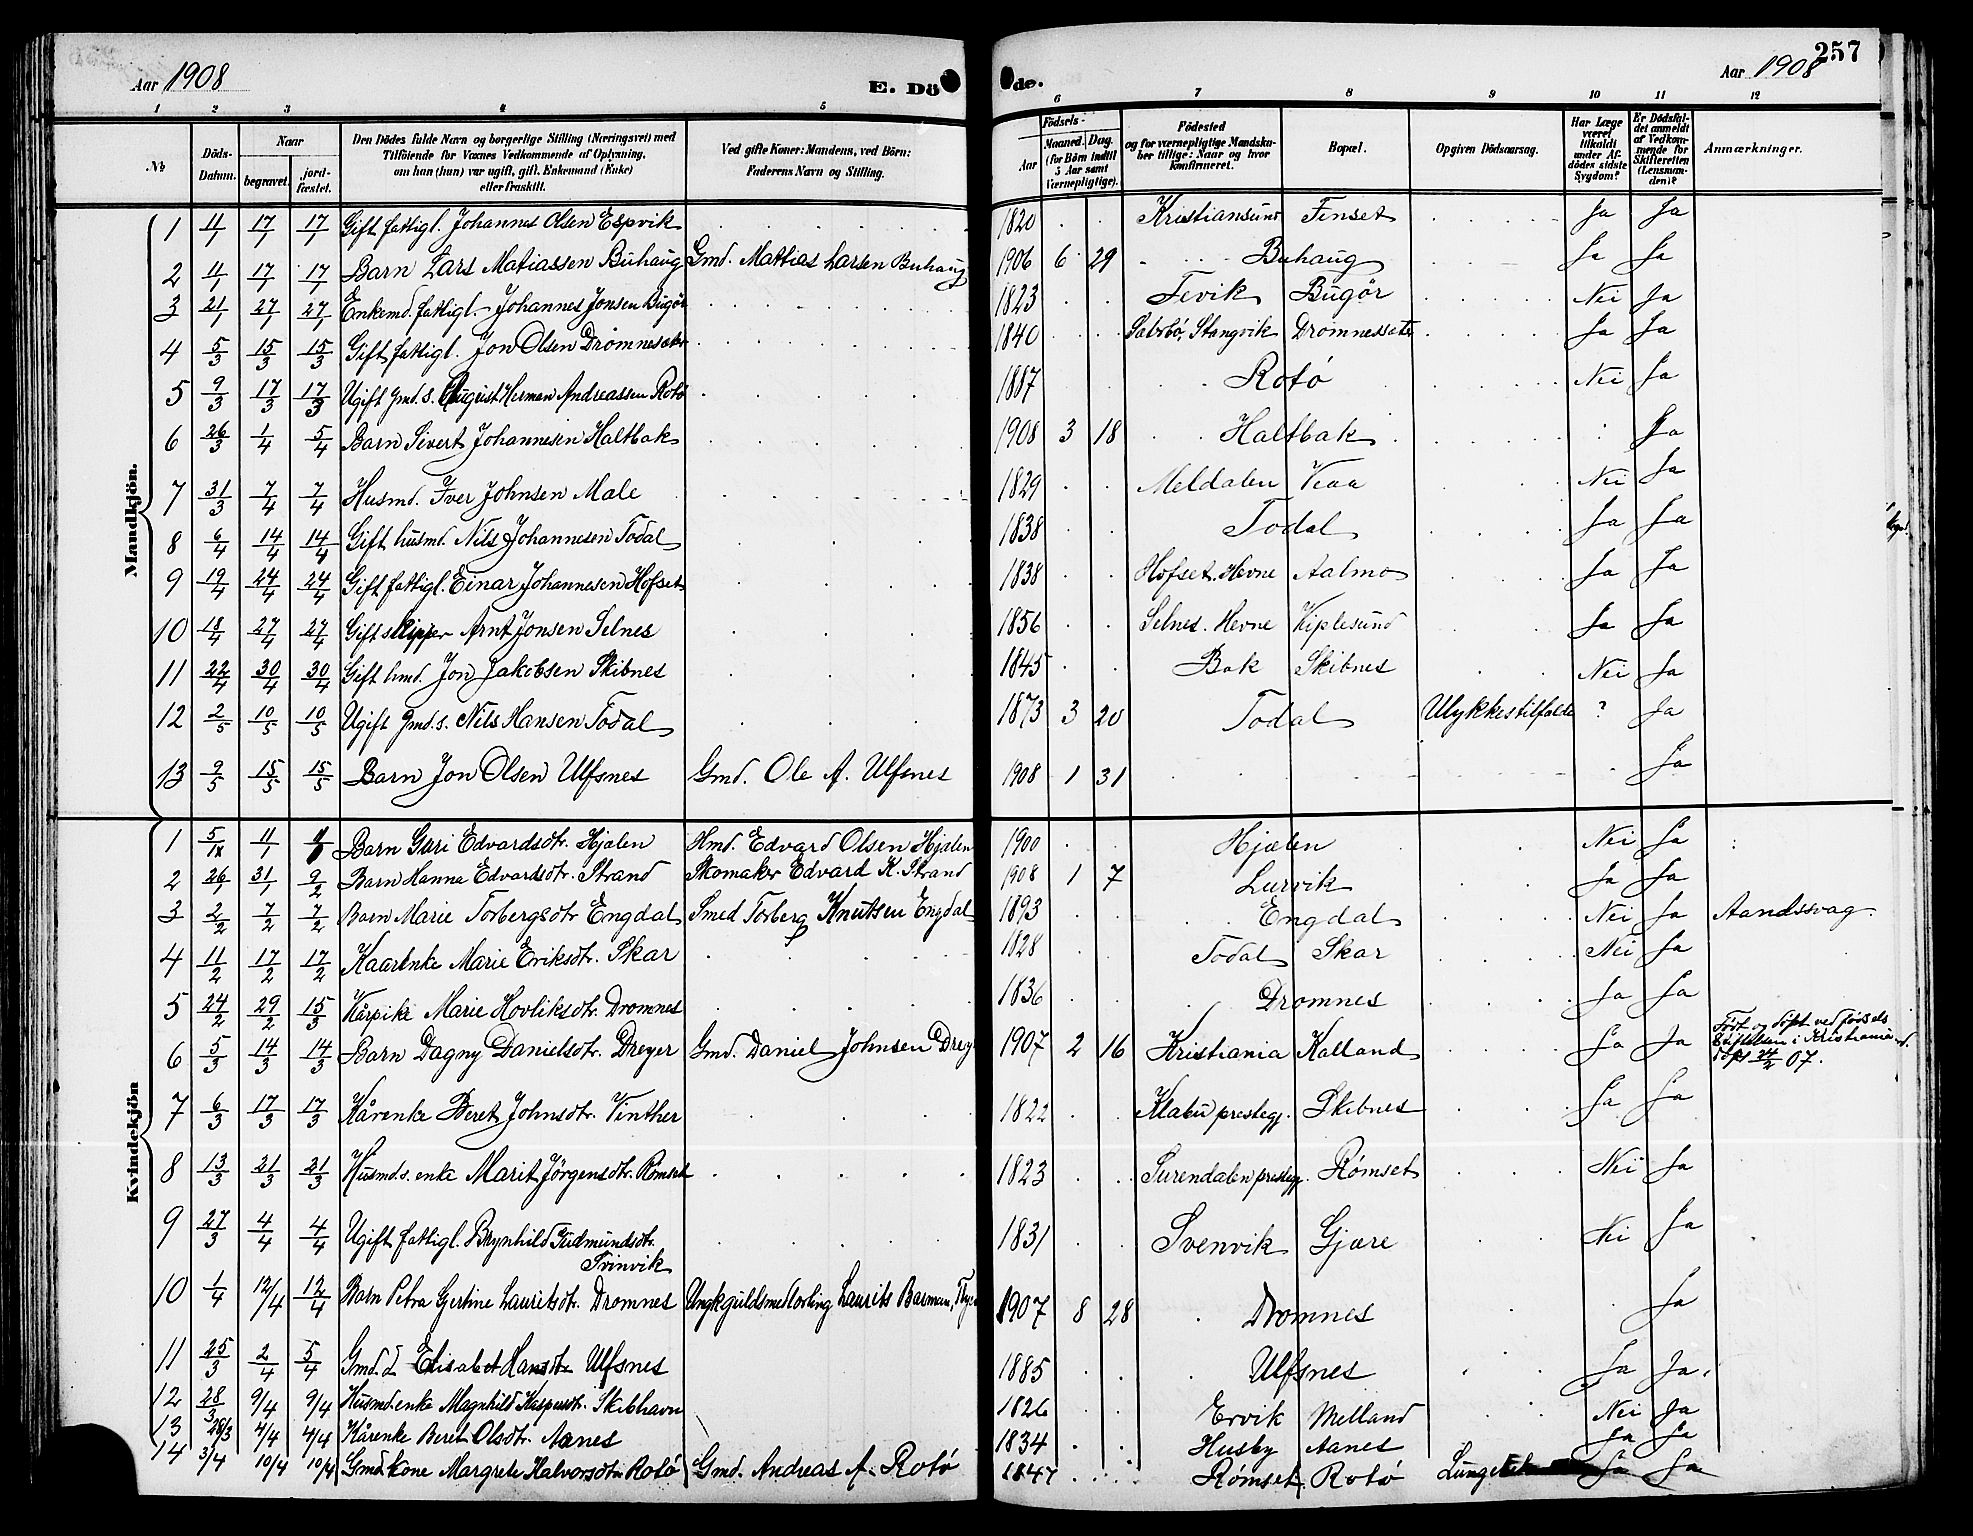 257
Aar 1908 E. Döde. Aar 1908
1 2 3 4 5 6 7 8 9 10 11 12
No Döds-Datum. Naar begravet. jordfæstet. Den Dödes fulde Navn og borgerlige Stilling (Næringsvei) med Tilföiende for Voxnes Vedkommende af Oplysning, om han (hun) var ugift, gift, Enkemand (Enke) eller fraskilt. Ved gifte Koner: Mandens, ved Börn: Faderens Navn og Stilling. Födsels- Aar Maaned. Dag. (for Börn indtil 5 Aar samt Værnepligtige). Födested og for værnepligtige Mandskaber tillige: Naar og hvor konfirmeret. Bopæl. Opgiven Dödsaarsag. Har Læge været tilkaldt under Afdödes sidste Sygdom? Er Dödsfaldet anmeldt af Vedkommende for Skifteretten (Lensmanden)? Anmærkninger.
Mandkjön.
1 11/1 17/1 17/1 Gift fattigl. Johannes Olsen Espvik 1820 Kristiansund Finset Ja Ja
2 11/1 17/1 17/1 Barn Lars Matiassen Buhaug Gmd. Mattias Larsen Buhaug 1906 6 29 Buhaug Ja Ja
3 21/1 27/1 27/1 Enkemd. fattigl. Johannes Jonsen Bugör 1823 Tevik Bugör Nei Ja
4 5/3 15/3 15/3 Gift fattigl. Jon Olsen Dromnesæter 1840 Stangvik Dromnessæter Ja Ja
5 9/3 17/3 17/3 Ugift gmd. s. August Herman Andreassen Rotö 1887 Rotö Nei Ja
6 26/3 1/4 5/4 Barn Sivert Johannesen Haltbak 1908 3 18 Haltbak Ja
7 31/3 7/4 7/4 Husmd. Iver Johnsen Male 1829 Meldalen Viaa Nei Ja
8 6/4 14/4 14/4 Gift husmd. Nils Johannesen Todal 1838 Todal Ja Ja
9 19/4 24/4 24/4 Gift fattigl. Einar Johannesen Hofset 1838 Hofset. Hevne Aalmo Ja Ja
10 18/4 27/4 27/4 Gift skipper Arnt Jonsen Selnes 1856 Selnes. Hevne Kiplesund Ja Ja
11 22/4 30/4 30/4 Gift hmd. Jon Jakobsen Skibnes 1845 Bak Skibnes Nei Ja
12 2/5 10/5 10/5 Ugift gmd. s. Nils Hansen Todal 1873 3 20 Todal Ulykkestilfælde ? Ja
13 9/5 15/5 15/5 Barn Jon Olsen Ulfsnes Gmd. Ole A. Ulfsnes 1908 1 31 Ja
Kvindekjön
1 5/1 11/1 Barn Guri Edvardsdtr. Hjælen Hmd. Edvard Olsen Hjælen 1900 Hjælen Nei Ja
2 26/1 31/1 9/2 Barn Hanna Edvardsdtr. Strand Skomaker Edvard K. Strand 1908 1 7 Lurvik Ja Ja
3 2/2 7/2 7/2 Barn Marie Torbergsdtr Engdal Smed Torberg Knutsen Engdal 1893 Engdal Nei Ja Aandssvag.
4 11/2 17/2 17/2 Kaarenke Marie Eriksdtr. Skar 1828 Todal Skar Nei Ja
5 24/2 29/2 15/3 Kårpike Marie Hovliksdtr. Dromnes 1836 Dromnes Ja Ja
6 5/3 14/3 14/3 Barn Dagny Danielsdtr. Dreyer Gmd. Daniel Johnsen Drey 1907 2 16 Kristiania Kalland Ja Ja Født og döpt ved fødsels Stiftelsen i Kristiania döpt 24/2 07.
7 6/3 17/3 17/3 Kårenke Beret Johnsdtr. Vinther 1822 Klæbu prestegj. Skibnes Ja Ja
8 13/3 21/3 21/3 Husmd.s. enke Marit Jörgensdtr. Romset 1823 Surendalen prestegj. Rómset Nei Ja
9 27/3 4/4 4/4 Ugift fattigl. Brynhild Gudmundsdtr.
Svinvik 1831 Svenvik Gjære Nei Ja
10 1/4 12/4 12/4 Barn Petra Gjertine Lauritsdtr. Dromnes Ungk guldsmedlærling Laurits Barman, 1907 8 28 Dromnes Ja
11 25/3 2/4 5/4 Gmd. d Elisabet Hansdtr Ulfsnes 1885 Ulfsnes Ja Ja.
12 28/3 9/4 9/4 Husmd. enke Magnhild Kaspersdtr. Skibhavn 1826 Ervik Melland Nei Ja
13 28/3 4/4 4/4 Kårenke Beret Olsdtr. Aanes 1834 Husby Aanes Ja Ja
14 3/4 10/4 10/4 Gmd. kone Margrete Halvorsdtr Rotö Gmd. Andreas A. Rotö 1847 Rómset Rotö Ja Ja